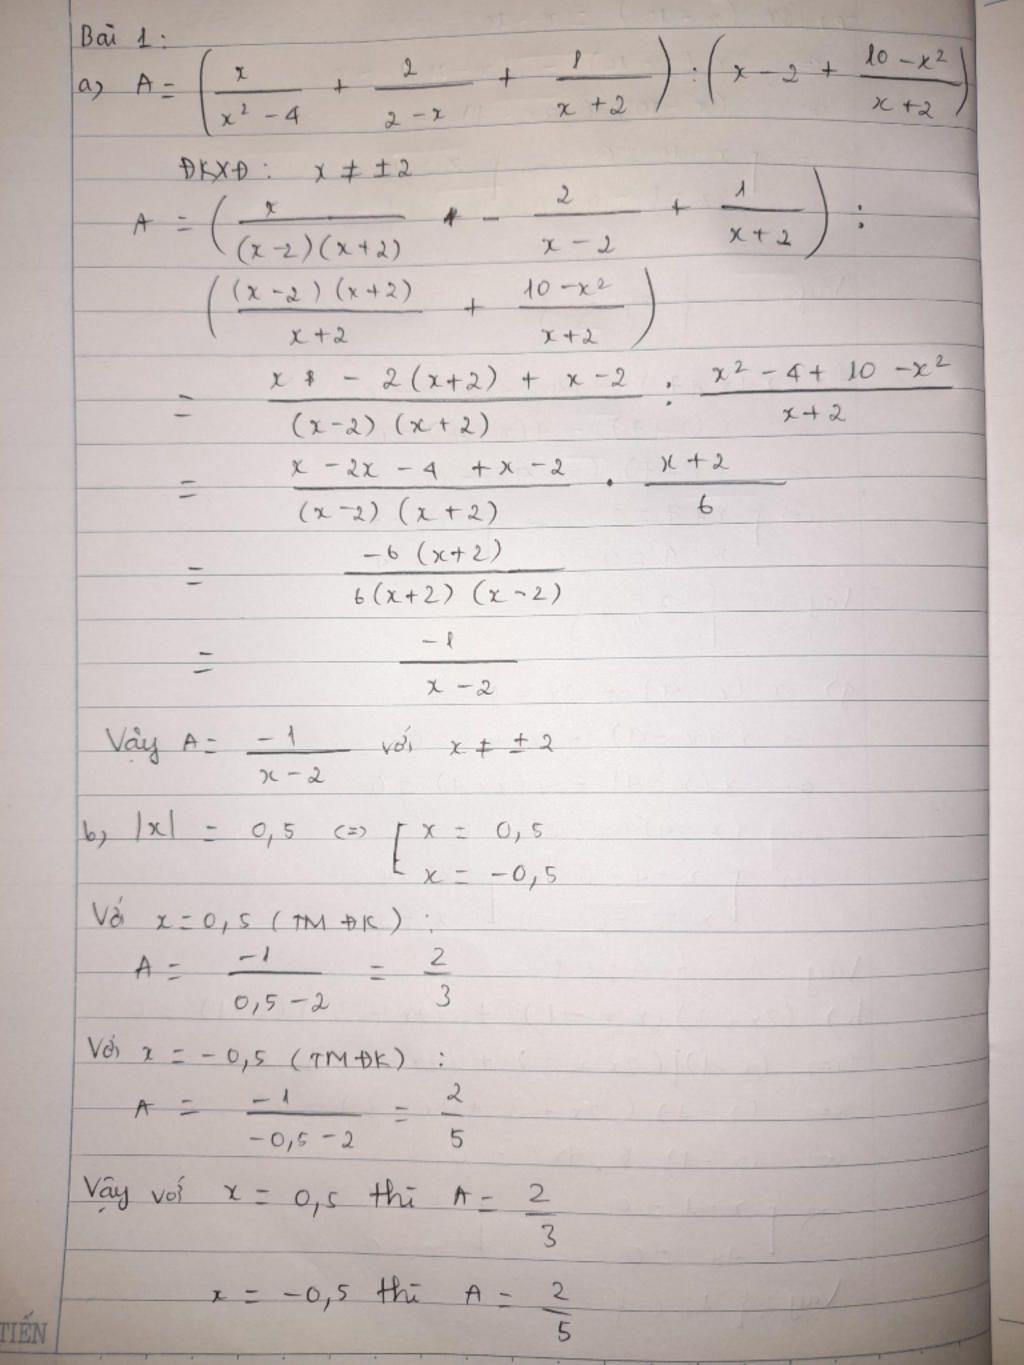 Bài 1:
a) A = ( x / (x² - 4) + 2 / (2 - x) + 1 / (x + 2) ) : ( x - 2 + (10 - x²) / (x + 2) )
ĐKXĐ: x ≠ ±2
A = ( x / ((x - 2)(x + 2)) - 2 / (x - 2) + 1 / (x + 2) ) :
( ((x - 2)(x + 2)) / (x + 2) + (10 - x²) / (x + 2) )
= (x - 2(x + 2) + x - 2) / ((x - 2)(x + 2)) : (x² - 4 + 10 - x²) / (x + 2)
= (x - 2x - 4 + x - 2) / ((x - 2)(x + 2)) . (x + 2) / 6
= -6(x + 2) / (6(x + 2)(x - 2))
= -1 / (x - 2)
Vậy A = -1 / (x - 2) với x ≠ ± 2
b) |x| = 0,5 <=> [ x = 0,5
x = -0,5
Với x = 0,5 (TM ĐK):
A = -1 / (0,5 - 2) = 2 / 3
Với x = -0,5 (TMĐK):
A = -1 / (-0,5 - 2) = 2 / 5
Vậy với x = 0,5 thì A = 2 / 3
x = -0,5 thì A = 2 / 5
TIẾN